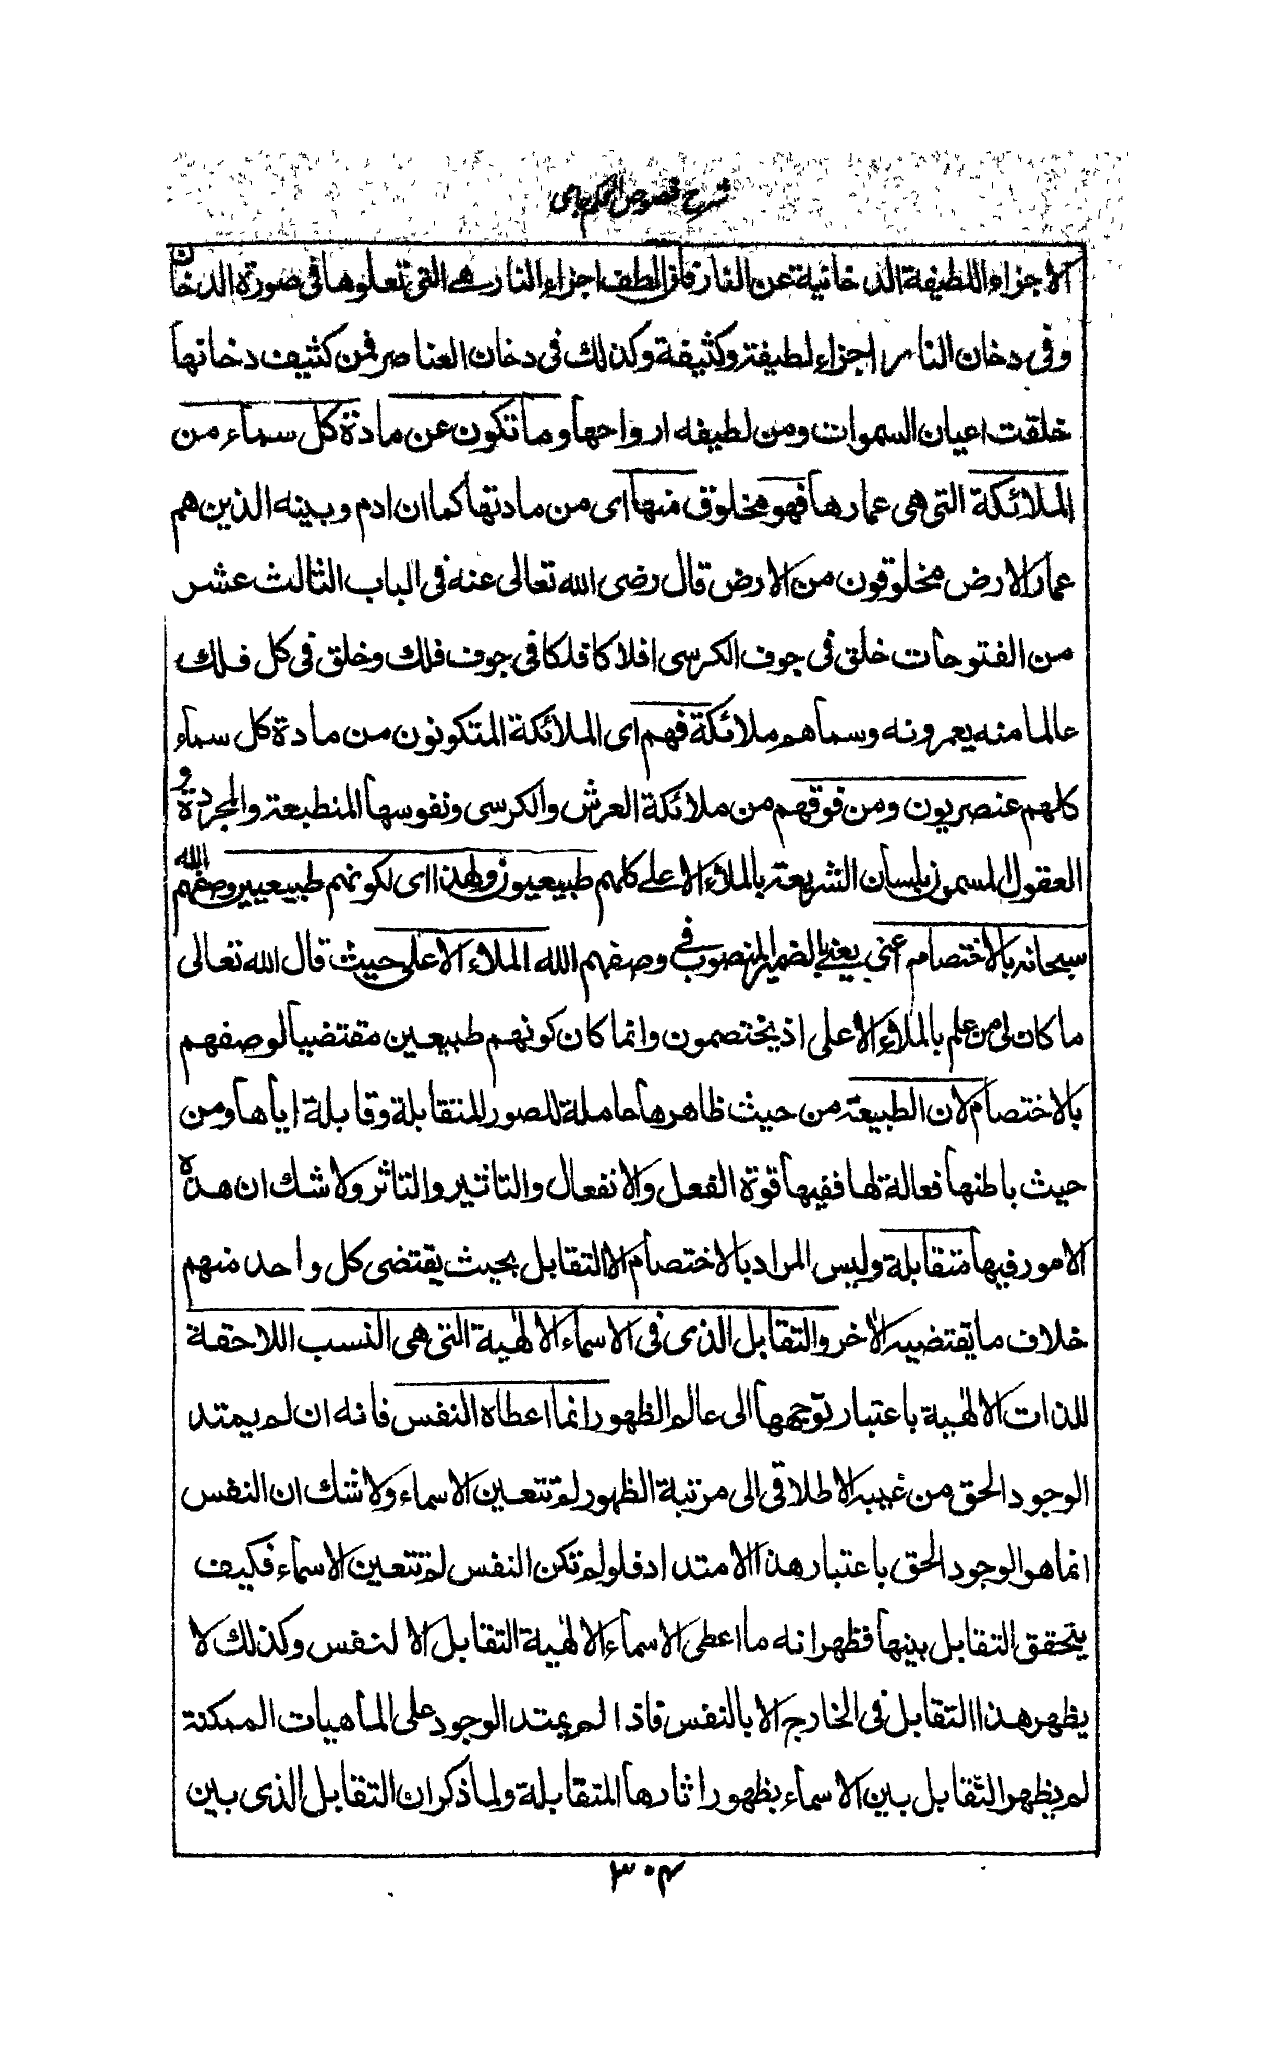 شرح فصوص الحكم جامى
الاجزاء اللطيفة الدخانية عن النار فان الطف اجزاء النار هى التى تعلوها فى صورة الدخان
وفى دخان النار اجزاء لطيفة وكثيفة وكذلك فى دخان العناصر فمن كثيف دخانها
خلقت اعيان السموات ومن لطيفه ارواحها وما تكون عن مادة كل سماء من
الملائكة التى هى عمارها فهو مخلوق منها اى من مادتها كما ان ادم وبينه الذين هم
عمار الارض مخلوقون من الارض قال رضى الله تعالى عنه فى الباب الثالث عشر
من الفتوحات خلق فى جوف الكرسى افلاكا فلكا فى جوف فلك وخلق فى كل فلك
عالما منه يعمرونه وسماهم ملائكة فهم اى الملائكة المتكونون من مادة كل سماء
كلهم عنصريون ومن فوقهم من ملائكة العرش والكرسى ونفوسها المنطبعة والمجردة و
العقول المسمون بلسان الشريعة بالملاء الاعلى كلهم طبيعيون ولهذا اى لكونهم طبيعيين وصفهم الله
سبحانه بالاختصام اعنى يعنى بالضمير المنصوب فى وصفهم الله الملاء الاعلى حيث قال الله تعالى
ما كان لى من علم بالملاء الاعلى اذ يختصمون وانما كان كونهم طبيعين مقتضيا لوصفهم
بالاختصام لان الطبيعة من حيث ظاهرها حاملة للصور المتقابلة وقابلة اياها ومن
حيث باطنها فعالة لها ففيها قوة الفعل والانفعال والتاثير والتاثر ولا شك ان هذه
الامور فيها متقابلة وليس المراد بالاختصام الا التقابل بحيث يقتضى كل واحد منهم
خلاف ما يقتضيه الأخر والتقابل الذى فى الاسماء الالهية التى هى النسب اللاحقة
للذات الالهية باعتبار توجهها الى عالم الظهور انما اعطاه النفس فانه ان لم يمتد
الوجود الحق من غيبه الاطلاقى الى مرتبة الظهور لم تتعين الاسماء ولا شك ان النفس
انما هو الوجود الحق باعتبار هذا الامتداد فلو لم تكن النفس لم تتعين الاسماء فكيف
يتحقق التقابل بينها فظهر انه ما اعطى الاسماء الالهية التقابل الا لنفس وكذلك لا
يظهر هذا التقابل فى الخارج الا بالنفس فاذا لم يمتد الوجود على الماهيات الممكنة
لم يظهر التقابل بين الاسماء بظهور اثارها المتقابلة ولما ذكر ان التقابل الذى بين
٣٠٤